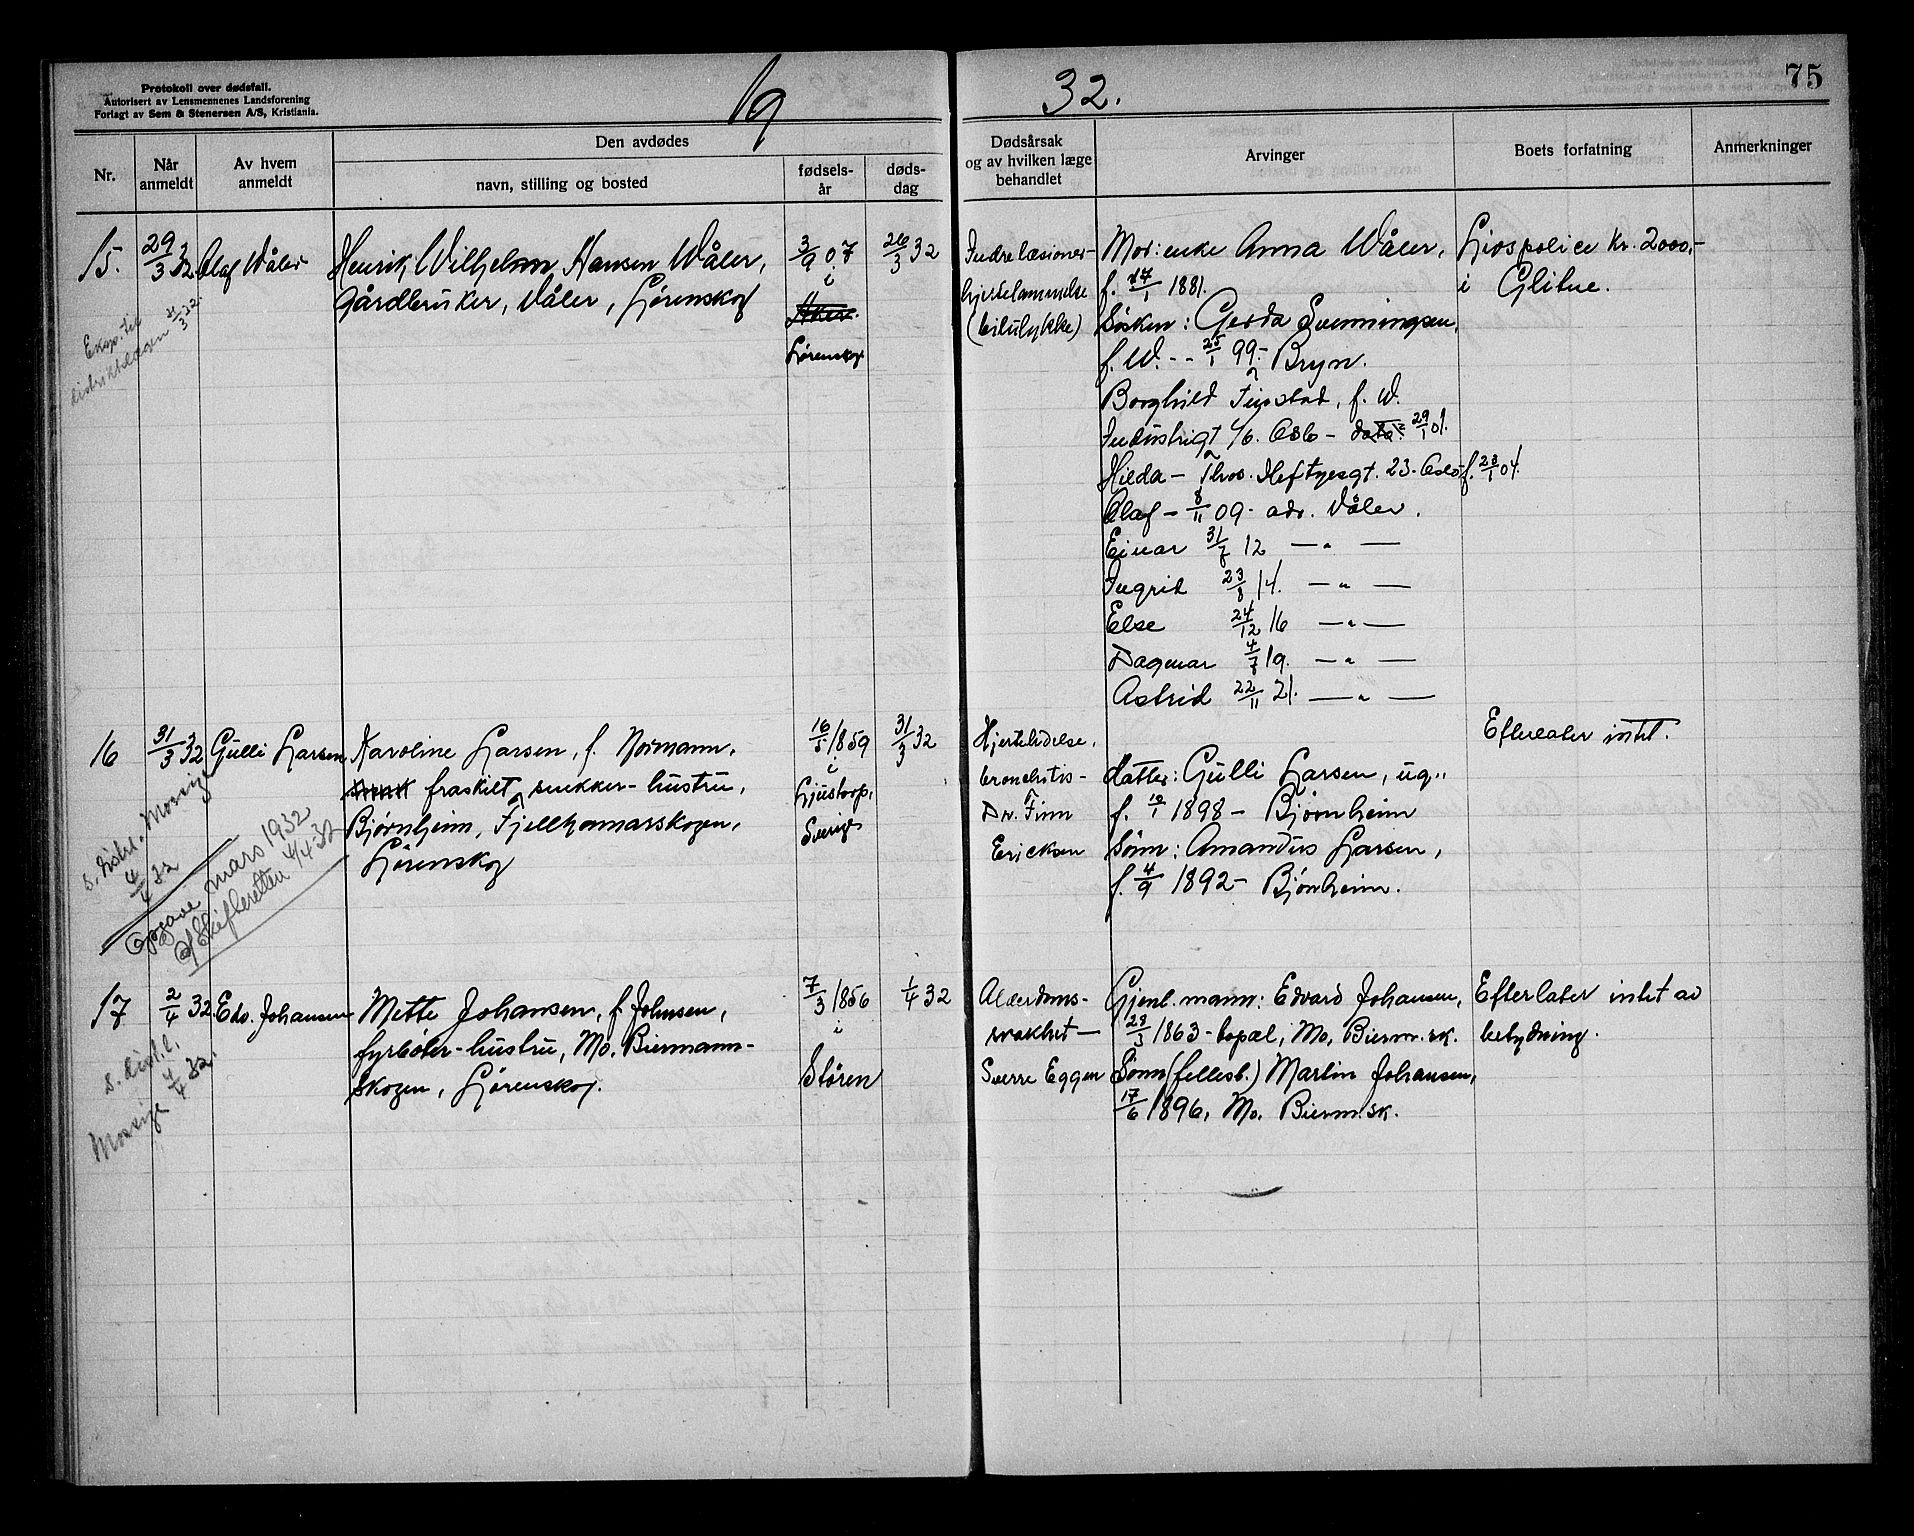 Protokoll over dødsfall.
Autorisert av Lensmennenes Landsforening
Forlagt av Sem & Stenersen A/S, Kristiania.
19 32.
75
Nr.
Når anmeldt
Av hvem anmeldt
Den avdødes
navn, stilling og bosted
fødsels-år
døds-dag
Dødsårsak og av hvilken læge behandlet
Arvinger
Boets forfatning
Anmerkninger
15.
29/3 32
Olaf Wåler
Henrik Wilhelm Hansen Wåler,
gårdbruker, Våler, Lørenskog
3/9 07
i
Aker.
Lørenskog
26/3 32
Indre læsioner-
hjertelammelse
(bilulykke)
Mor: enke Anna Wåler,
f. 17/1 1881.
Søsken: Gerda Svenningsen,
f. W. - - 25/1 99.- Bryn.
Borghild Fupstad, f. W.
Industrigt 46. Oslo - 29/1 01.
Hilda - Thos. Heftyesgt. 23. Oslo f. 23/1 04.
Olaf - 8/11 09 - adr. Våler.
Einar 31/7 12 — „ —
Ingrid 23/8 14. — „ —
Else 24/12 16 — „ —
Dagmar 4/7 19. — „ —
Astrid 22/11 21. — „ —
Livspolice kr. 2000,-
i Glitne.
Eksp. til
distriktslægen 31/3 32.
16
31/3 32
Gulli Larsen
Karoline Larsen, f. Normann,
fraskilt snekker-hustru,
Bjørnheim, Fjellhamarskogen,
Lørenskog
16/5 1859
i
Ljustorp,
Sverige
31/3 32
Hjertelidelse,
bronchitis-
Dr. Finn
Ericksen
Datter: Gulli Larsen, ug.,
f. 10/1 1898 - Bjørnheim
Sønn: Amandus Larsen,
f. 4/9 1892 - Bjønheim.
Efterlater intet.
s. distr. Mossige
4/4 32
Opgave mars 1932
af Skifteretten 4/4 32
17
2/4 32.
Edv. Johansen
Mette Johansen, f. Johnsen,
fyrbøter-hustru, Mo, Biermann-
skogen, Lørenskog.
7/3 1856
i
Støren
1/4 32
Alderdoms-
svakhet —
Sverre Eggen
Gjenl. mann: Edvard Johansen,
28/3 1863 - bopæl, Mo, Bierm.sk.
Sønn (fellesb.) Martin Johansen,
17/6 1896, Mo. Bierm.sk.
Efterlater intet av
betydning.
s. dist.l.
Mossige 4/4 32.